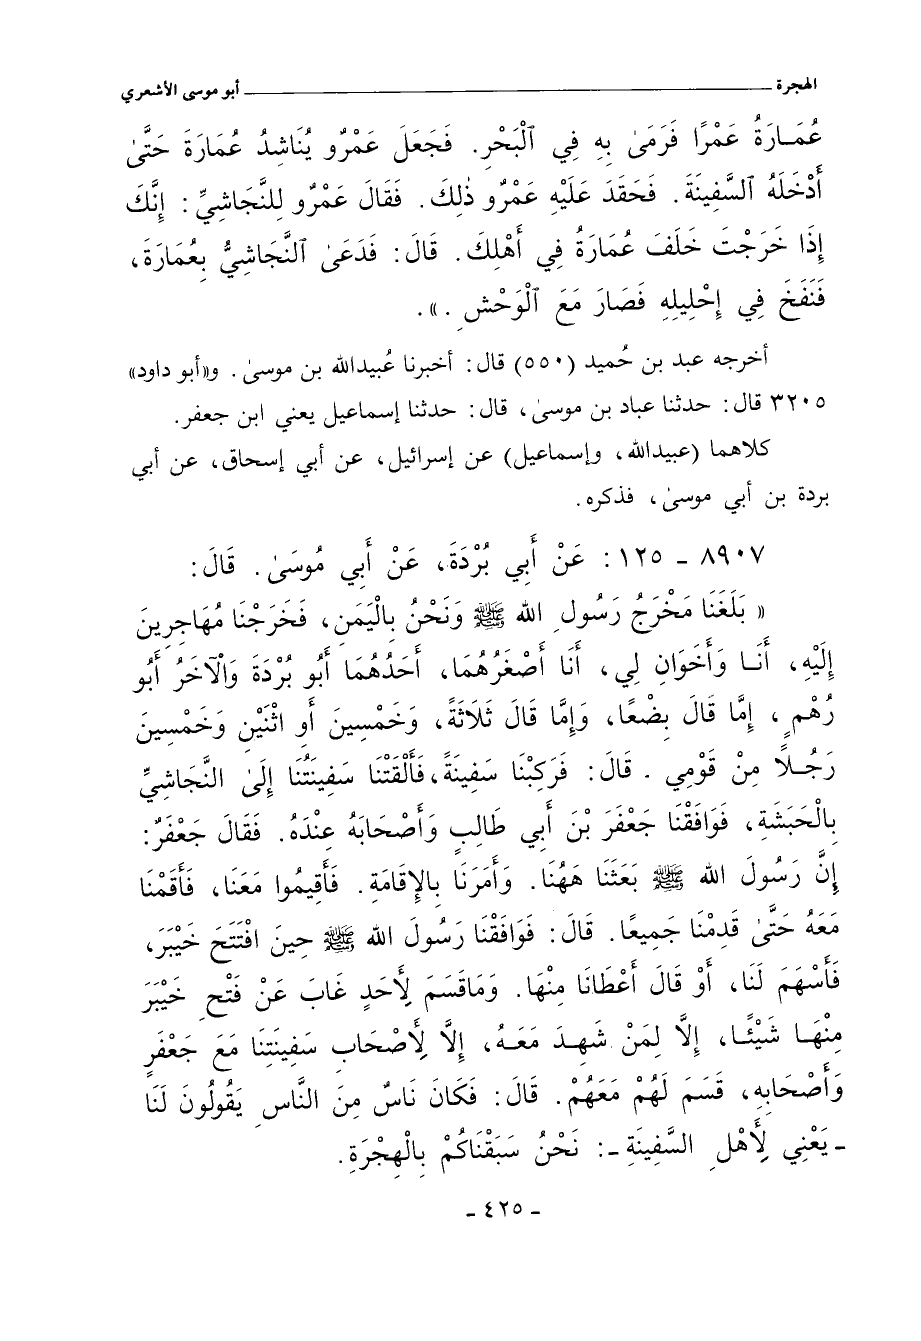 الهجرة ــــــــــــــــــــــــــــــ أبو موسى الأشعري
عُمَـارَةُ عَمْرًا فَرَمَىٰ بِهِ فِي ٱلْبَحْرِ. فَجَعَلَ عَمْرٌو يُنَاشِدُ عُمَارَةَ حَتَّىٰ
أَدْخَلَهُ ٱلسَّفِينَةَ. فَحَقَدَ عَلَيْهِ عَمْرٌو ذٰلِكَ. فَقَالَ عَمْرٌو لِلنَّجَاشِيِّ: إِنَّكَ
إِذَا خَرَجْتَ خَلَفَ عُمَارَةُ فِي أَهْلِكَ. قَالَ: فَدَعَىٰ ٱلنَّجَاشِيُّ بِعُمَارَةَ،
فَنَفَخَ فِي إِحْلِيلِهِ فَصَارَ مَعَ ٱلْوَحْشِ.».
أخرجه عبد بن حُميد (٥٥٠) قال: أخبرنا عُبيدالله بن موسىٰ. و«أبو داود»
٣٢٠٥ قال: حدثنا عباد بن موسىٰ، قال: حدثنا إسماعيل يعني ابن جعفر.
كلاهما (عبيدالله، وإسماعيل) عن إسرائيل، عن أبي إسحاق، عن أبي
بردة بن أبي موسىٰ، فذكره.
٨٩٠٧ ـ ١٢٥: عَنْ أَبِي بُرْدَةَ، عَنْ أَبِي مُوسَىٰ. قَالَ:
« بَلَغَنَا مَخْرَجُ رَسُولِ الله ﷺ وَنَحْنُ بِالْيَمَنِ، فَخَرَجْنَا مُهَاجِرِينَ
إِلَيْهِ، أَنَـا وَأَخَوَانِ لِي، أَنَا أَصْغَرُهُمَا، أَحَدُهُمَا أَبُو بُرْدَةَ وَالْآخَرُ أَبُو
رُهْمٍ، إِمَّا قَالَ بِضْعًا، وَإِمَّا قَالَ ثَلَاثَةً، وَخَمْسِينَ أَوِ اثْنَيْنِ وَخَمْسِينَ
رَجُـلًا مِنْ قَوْمِي. قَالَ: فَرَكِبْنَا سَفِينَةً، فَأَلْقَتْنَا سَفِينَتُنَا إِلَىٰ النَّجَاشِيِّ
بِالْحَبَشَةِ، فَوَافَقْنَا جَعْفَرَ بْنَ أَبِي طَالِبٍ وَأَصْحَابَهُ عِنْدَهُ. فَقَالَ جَعْفَرٌ:
إِنَّ رَسُولَ الله ﷺ بَعَثَنَا هٰهُنَا. وَأَمَرَنَا بِالإِقَامَةِ. فَأَقِيمُوا مَعَنَا، فَأَقَمْنَا
مَعَهُ حَتَّىٰ قَدِمْنَا جَمِيعًا. قَالَ: فَوَافَقْنَا رَسُولَ الله ﷺ حِينَ افْتَتَحَ خَيْبَرَ،
فَأَسْهَمَ لَنَا، أَوْ قَالَ أَعْطَانَا مِنْهَا. وَمَاقَسَمَ لِأَحَدٍ غَابَ عَنْ فَتْحِ خَيْبَرَ
مِنْهَـا شَيْئًـا، إِلَّا لِمَنْ شَهِـدَ مَعَـهُ، إِلَّا لِأَصْحَابِ سَفِينَتِنَا مَعَ جَعْفَرٍ
وَأَصْحَابِهِ، قَسَمَ لَهُمْ مَعَهُمْ. قَالَ: فَكَانَ نَاسٌ مِنَ النَّاسِ يَقُولُونَ لَنَا
ـ يَعْنِي لِأَهْلِ السَّفِينَةِ ـ: نَحْنُ سَبَقْنَاكُمْ بِالْهِجْرَةِ.
ـ ٤٢٥ ـ